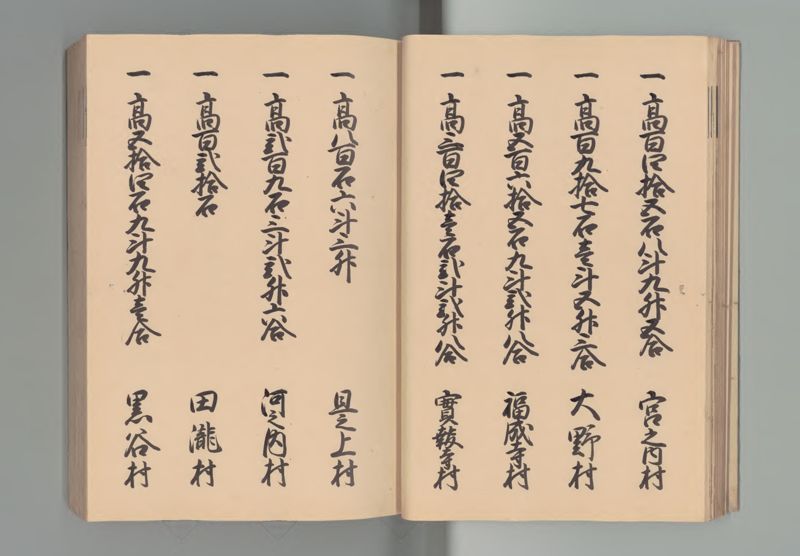 一 高百四拾五石八斗九升五合 宮之内村
一 高百九拾七石壱斗五升三合 大野村
一 高五百六拾五石九斗弐升八合 福成寺村
一 高三百四拾壱石弐斗弐升八合 寳報寺村
一 高八百石六斗三升 且之上村
一 高弐百九石三斗弐升六合 河之内村
一 高百弐拾石 田瀧村
一 高五拾四石九斗九升壱合 黒谷村